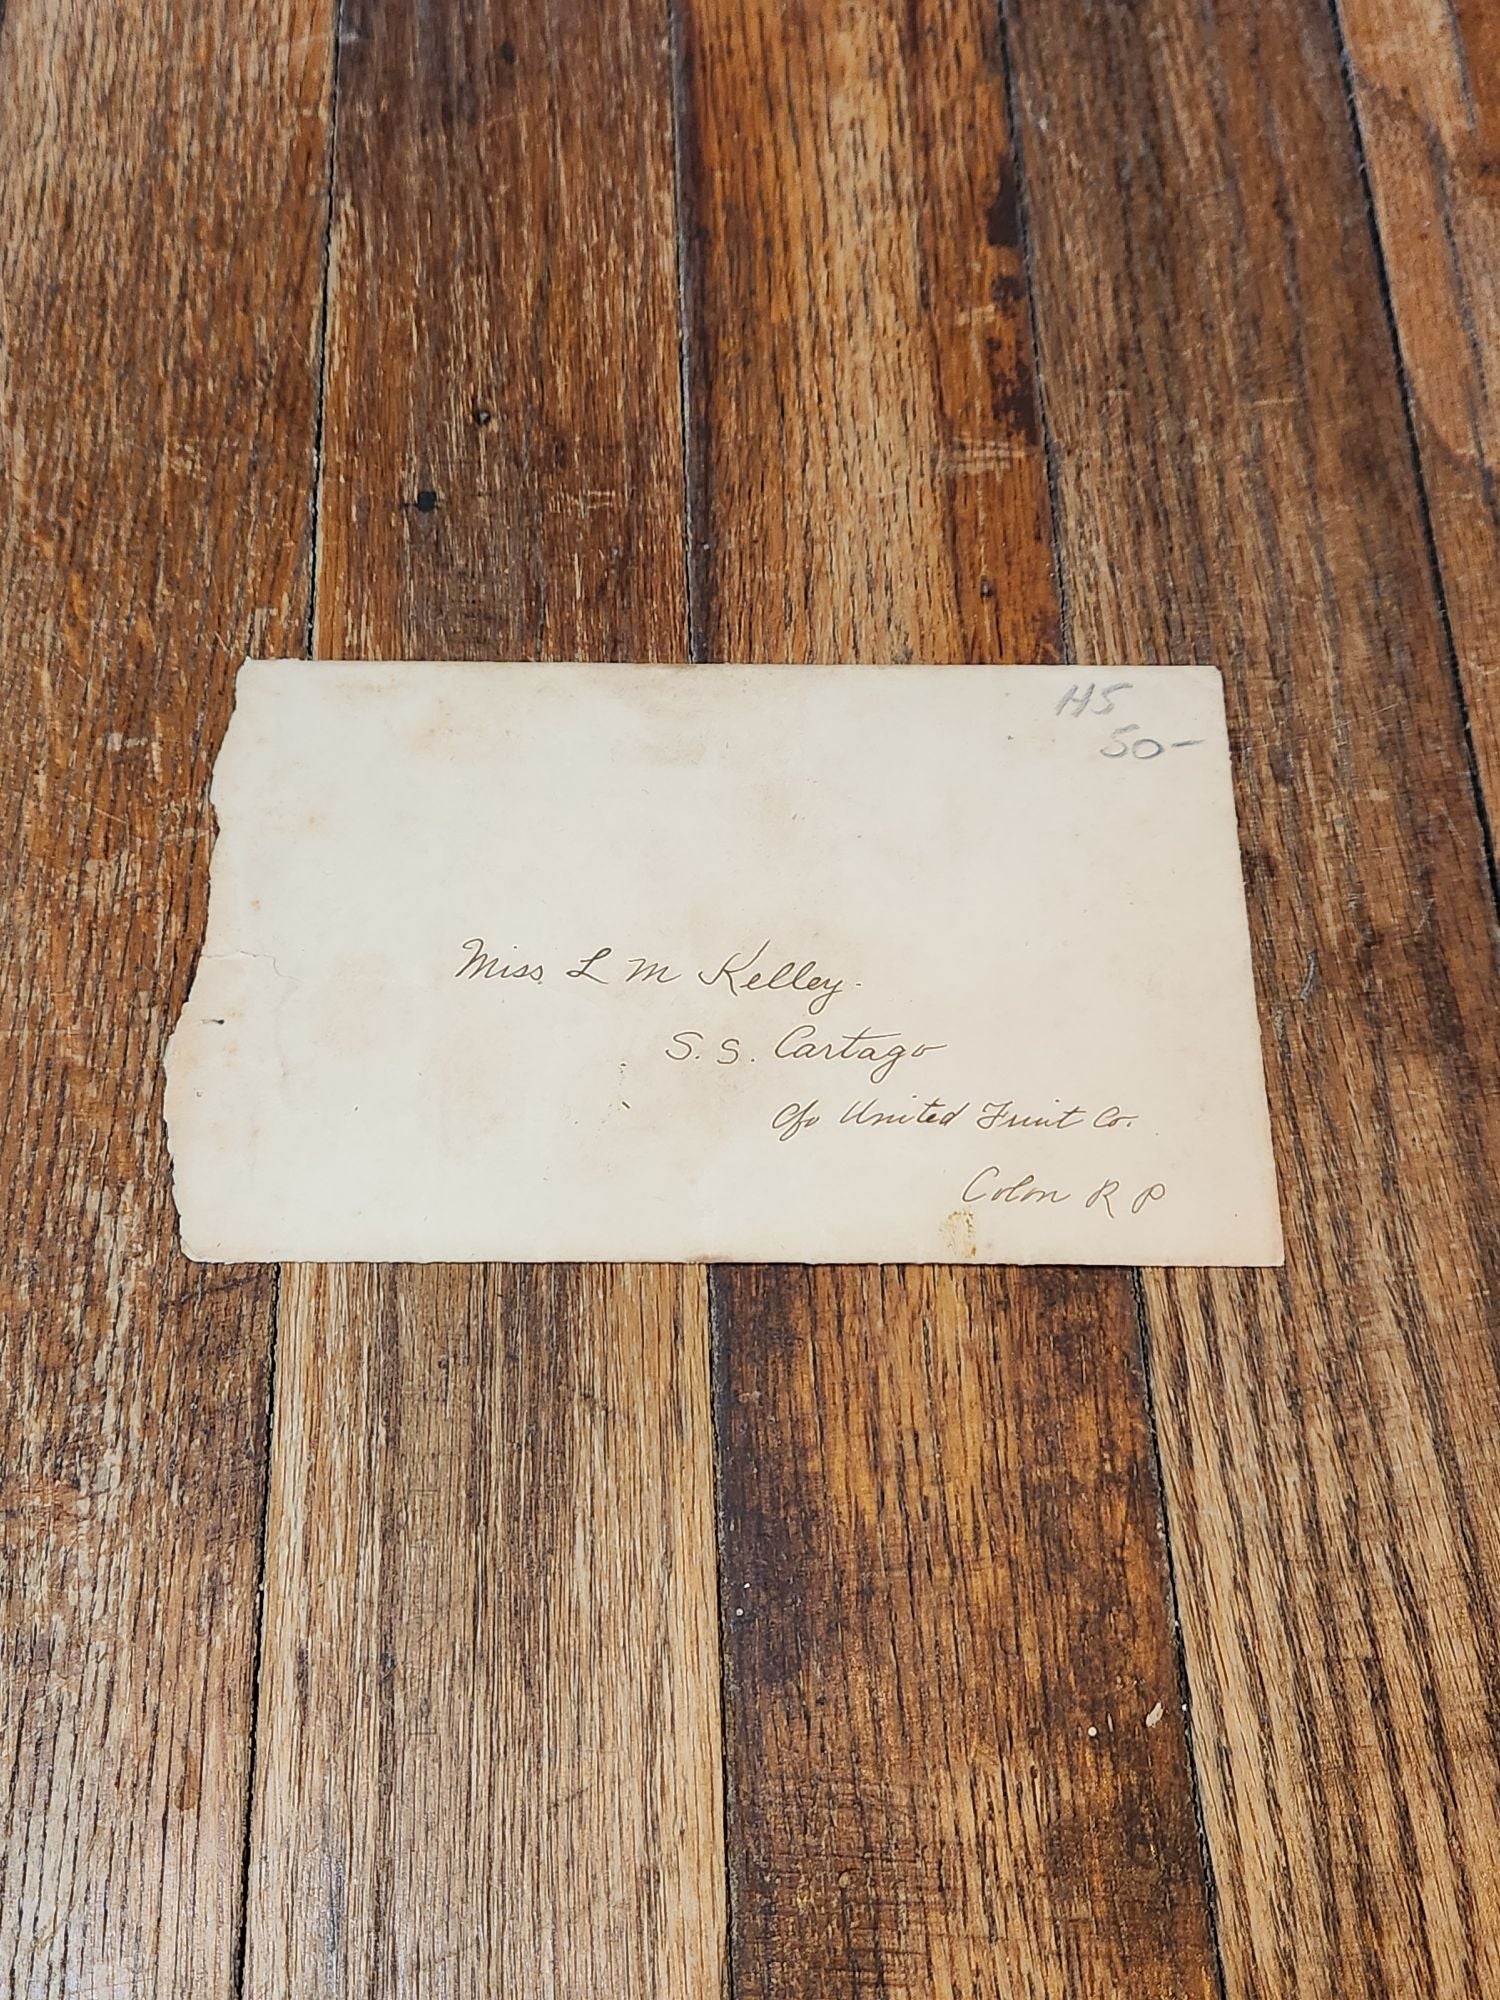 H5
50-
Miss. L M Kelley.
S. S. Cartago
c/o United Fruit Co.
Colon R P